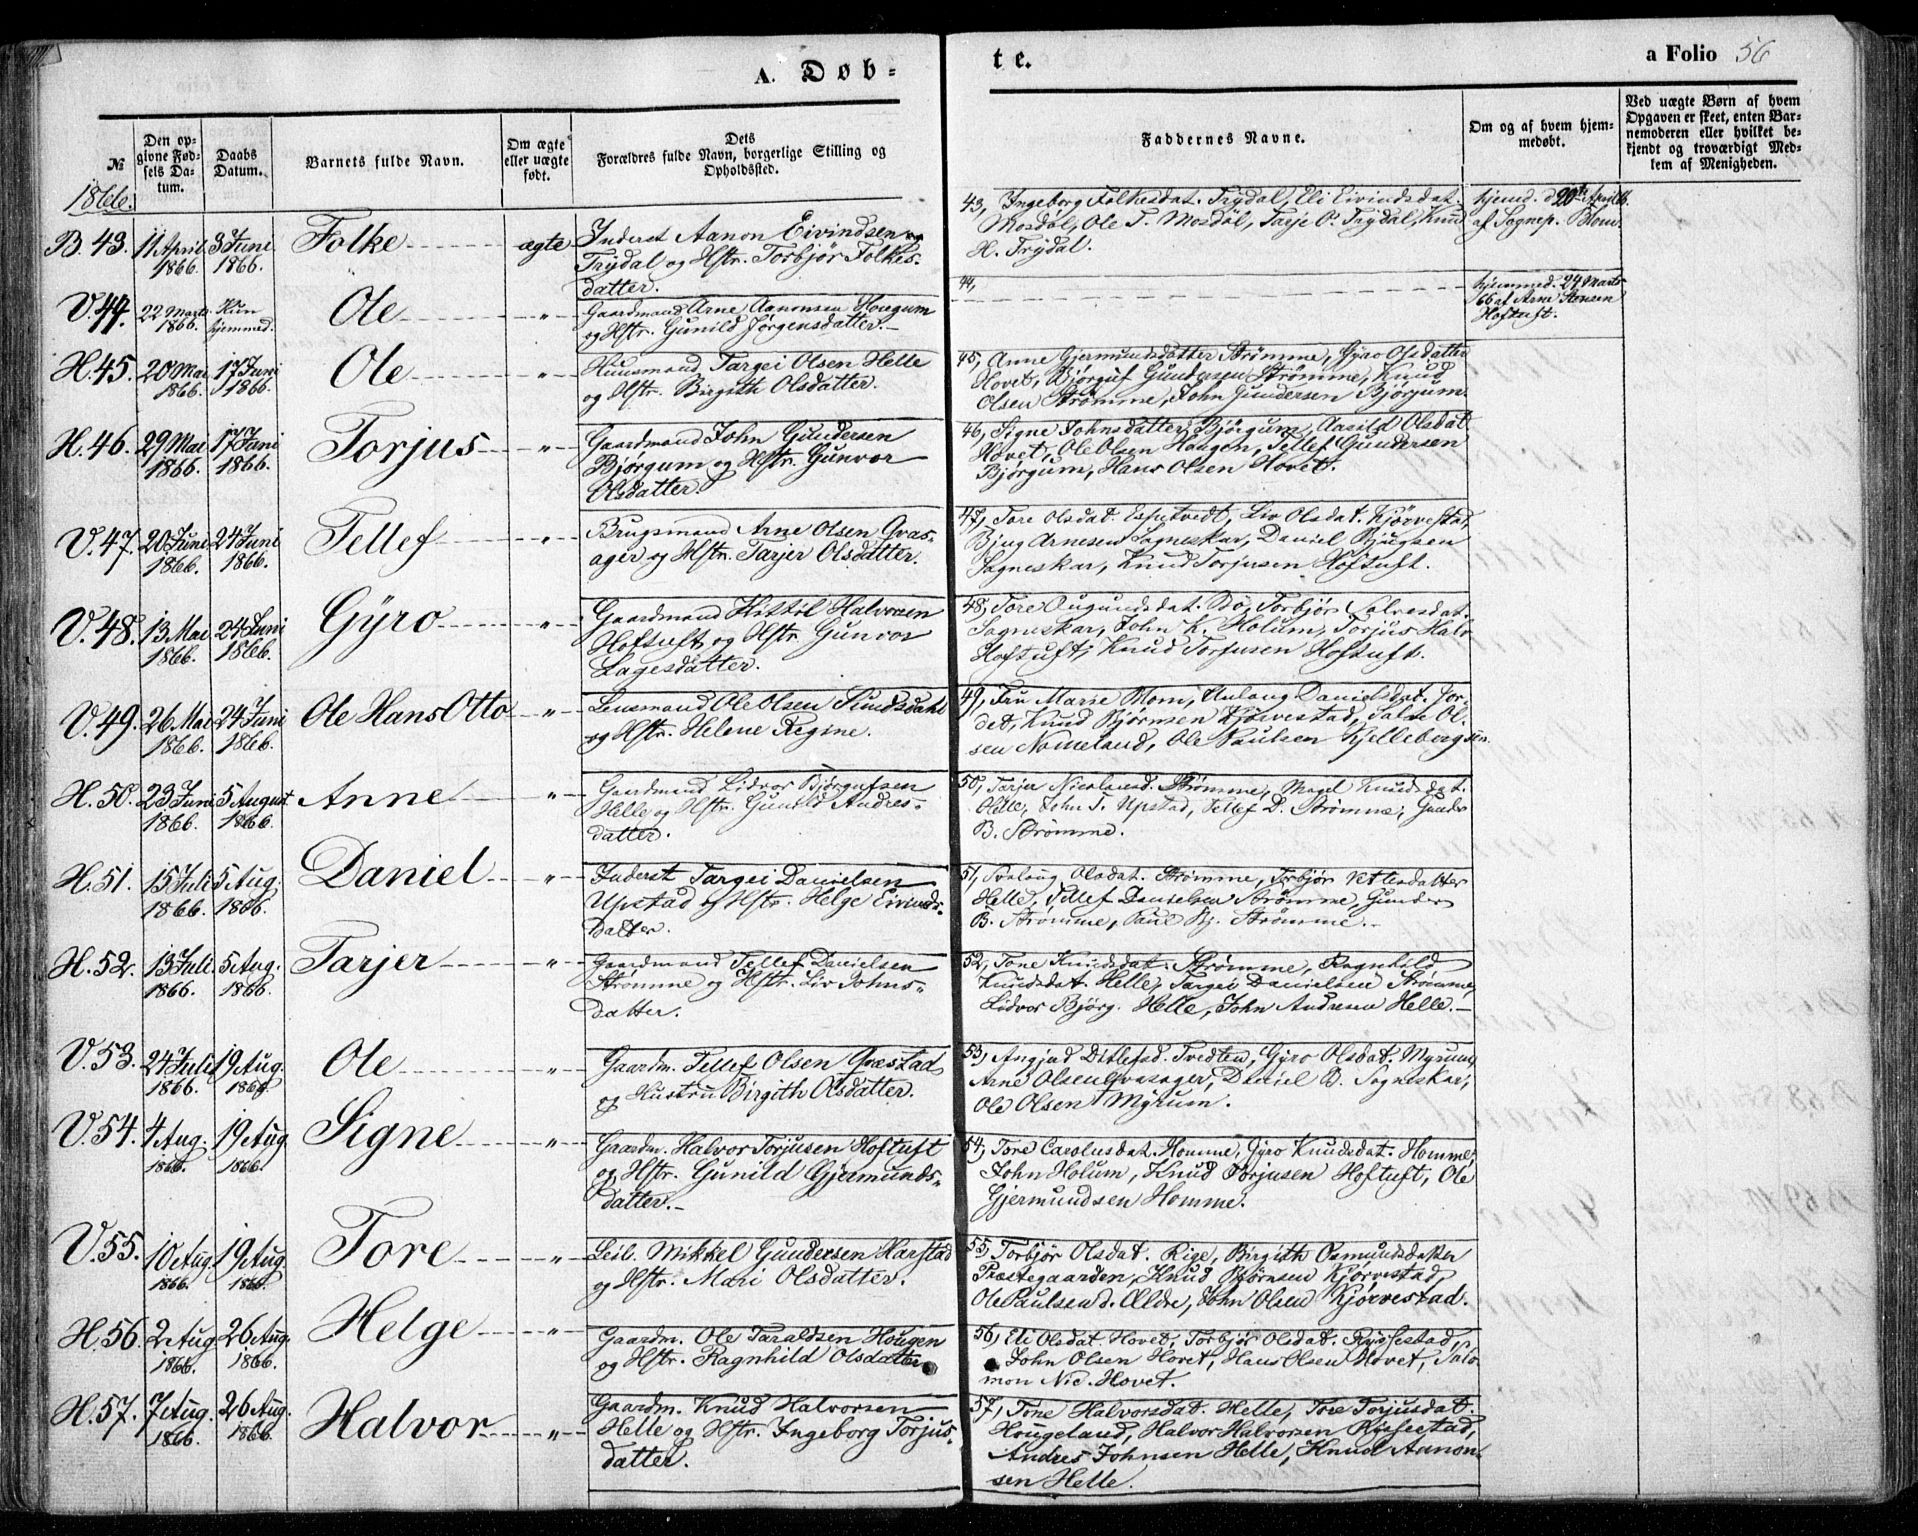 A. Døb-
№
Den opgivne Fødsels Datum.
Daabs Datum.
Barnets fulde Navn.
Om ægte eller uægte født.
Dets Forældres fulde Navn, borgerlige Stilling og Opholdssted.
1866.
B. 43. 11 April 1866. 3 Juni 1866. Folke ægte Inderst Aanon Eivindsen
Trydal og Hstr. Torbjør Folkes-
datter.
V. 44. 22 Marts 1866. Kun hjemmed. Ole " Gaardmand Arne Aanonsen Hougum
og Hstr. Gunild Jørgensdatter.
H. 45. 20 Mai 1866. 17 Juni 1866. Ole " Huusmand Targei Olsen Helle
og Hstr. Birgith Olsdatter.
H. 46. 29 Mai 1866. 17 Juni 1866. Torjus " Gaardmand John Gundersen
Bjørgum og Hstr. Gunvor
Olsdatter.
V. 47. 20 Juni 1866. 24 Juni 1866. Tellef " Brugsmand Arne Olsen Qvas-
ager og Hstr. Tarjer Olsdatter.
V. 48. 13 Mai 1866. 24 Juni 1866. Gÿro " Gaardmand Kittil Halvorsen
Hoftuft og Hstr. Gunvor
Lagesdatter.
V. 49. 26 Mai 1866. 24 Juni 1866. Ole Hans Otto " Lensmand Ole Olsen Sundsdahl
og Hstr. Helene Regine.
H. 50. 23 Juni 1866. 5 August 1866. Anne " Gaardmand Lidvor Bjørgufsen
Helle og Hstr. Gunild Andres-
datter.
H. 51. 15 Juli 1866. 5 Aug. 1866. Daniel " Inderst Targei Danielsen
Upstad og Hstr. Helge Eivinds-
datter.
H. 52. 13 Juli 1866. 5 Aug. 1866. Tarjer " Gaardmand Tellef Danielsen
Strømme og Hstr. Liv Johns-
datter.
V. 53. 24 Juli 1866. 19 Aug. 1866. Ole " Gaardm. Tellef Olsen Qvæstad
og Hustru Birgith Olsdatter.
V. 54. 4 Aug. 1866. 19 Aug. 1866. Signe " Gaardm. Halvor Torjusen Hoftuft
og Hstr. Gunild Gjermunds-
datter.
V. 55. 10 Aug. 1866. 19 Aug. 1866. Tore " Leil. Mikkel Gundersen Harstad
og Hstr. Mari Olsdatter.
H. 56. 2 Aug. 1866. 26 Aug. 1866. Helge " Gaardm. Ole Taraldsen Hougen
og Hstr. Ragnhild Olsdatter
H. 57. 7 Aug. 1866. 26 Aug. 1866. Halvor " Gaardm. Knud Halvorsen
Helle og Hstr. Ingeborg Torjus-
datter.
te.
a Folio 56
Faddernes Navne.
Om og af hvem hjemmedøbt.
Ved uægte Børn af hvem Opgaven er skeet, enten Barnemoderen eller hvilket bekjendt og troværdigt Medlem af Menigheden.
43, Ingeborg Folkesdat. Trydal, Eli Eivindsdat. hjemd. d. 20de April 66
Mosdøl, Ole T. Mosdøl, Tarje P. Trydal, Knud af Sognep. Blom.
H. Trydal.
44, hjemmed. 24 Marts
66 af Arne Stensen
Hoftuft.
45, Anne Gjermundsdatter Strømme, Gÿro Olsdatter
Hovet, Bjørguf Gundersen Strømme, Knud
Olsen Strømme, John Gundersen Bjørgum.
46, Signe Johnsdatter Bjørgum, Aasild Olsdat.
Hovet, Ole Olsen Haugen, Tellef Gundersen
Bjørgum, Hans Olsen Hovet.
47, Tore Olsdat. Espetvedt, Liv Olsdat. Kjørvestad,
Bjug Arnesen Sagneskar, Daniel Bjugsen
Sagneskar, Knud Torjusen Hoftuft.
48, Tore Ougundsdat. Bø, Torbjør Salvesdat.
Sagneskar, John K. Holum, Torjus Halv.
Hoftuft, Knud Torjusen Hoftuft.
49, Fru Marie Blom, Aulaug Danielsdat. Jor-
det, Knud Bjørnsen Kjørvestad, Salve Ol-
sen Nomeland, Ole Paulsen Kjellebergsen.
50, Tarjer Nicolaisd. Strømme, Margit Knudsdat.
Helle, John T. Upstad, Tellef D. Strømme, Gunder
B. Strømme.
51, Aslaug Olsdat. Strømme, Torbjør Vetlesdatter
Helle, Tellef Danielsen Strømme, Gunder
B. Strømme, Paul Bj. Strømme.
52, Tone Knudsdat. Strømme, Ragnhild
Knudsdat. Helle, Targei Danielsen Strømme,
Lidvor Bjørg. Helle, John Andresen Helle.
53, Angjerd Ditlefsd. Tvedten, Gÿro Olsdat. Myrum,
Arne Olsen Qvasager, Daniel B. Sagneskar,
Ole Olsen Myrum.
54, Tore Carolusdat. Homme, Gyro Knudsdat. Homme,
John Holum, Knud Torjusen Hoftuft, Ole
Gjermundsen Homme.
55, Torbjør Olsdat. Rige, Birgith Osmundsdatter
Præstegaarden, Knud Bjørnsen Kjørvestad,
Ole Paulsen d. Ældre, John Olsen Kjørvestad.
56, Eli Olsdat Hovet, Torbjør Olsdat. Rysstad,
John Olsen Hovet, Hans Olsen Hovet, Salo-
mon Nic. Hovet.
57, Tone Halvorsdat. Helle, Tore Torjusdat.
Hougeland, Halvor Halvorsen Rysstad,
Andres Johnsen Helle, Knud Aanon-
sen Helle.